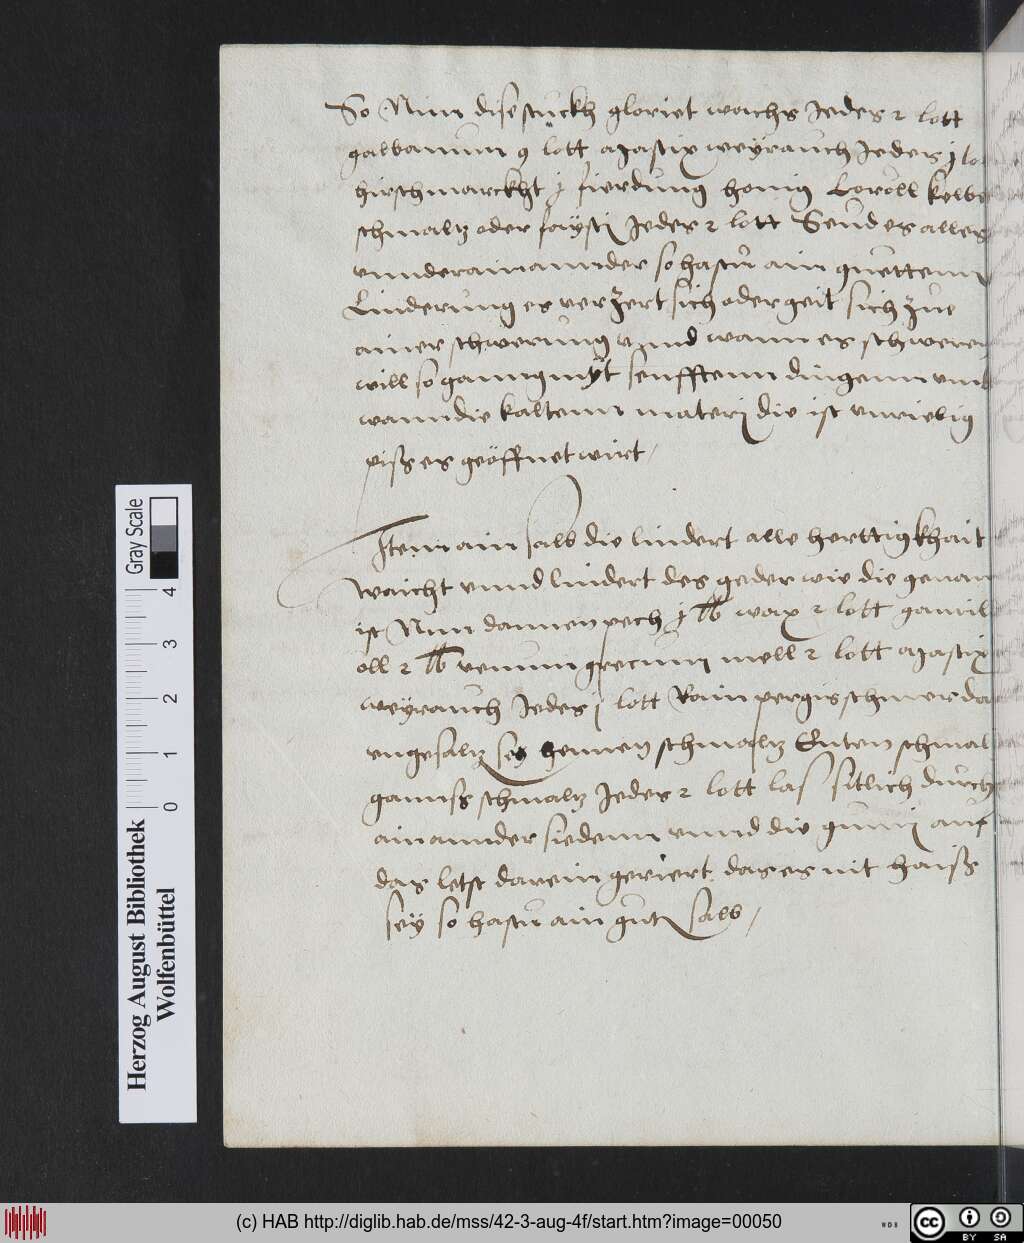 So Nim dise stückh gloriet wachs Jedes 2 lott
galbanum 9 lott Mastix weyrauch Jedes j lo
hirschmarckht j fierdung honig Loröll kelbe
schmaltz oder faysti Jedes 2 lott Seud es alles
vnnderainannder so hastu ain guettenn
Linderung es verzert sich oder geit sich zue
ainer schwerung vnnd wann es schweren
will so ganng mit sennfftenn dingenn vmb
wann die kaltenn materj die ist vnwirig
piss es geöffnet wirt /
Item ain salb die lindert alle herttigkhait
Waicht vnnd lindert des geder wie die genan
ist Nim dannen pech j lb wax 2 lott gamil
öll 2 lb venum grecum mell 2 lott Mastix
weyrauch Jedes j lott Rainpergis schmer da
vngesaltz sey hennen schmaltz Enten schmal
gannss schmaltz Jedes 2 lott las sitlich durch
ainannder siedenn vnnd die gumj auf
das letst darein geriert. das es nit haiss
sey so hastu ain gut salb /
Herzog August Bibliothek
Wolfenbüttel
Gray Scale
0 1 2 3 4
(c) HAB http://diglib.hab.de/mss/42-3-aug-4f/start.htm?image=00050
WDB
cc BY SA